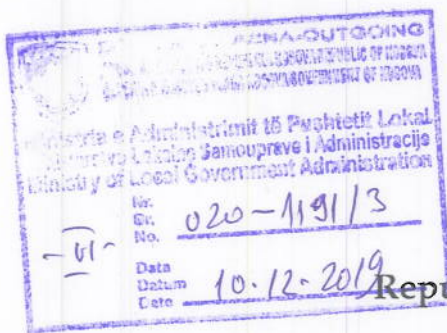 OUTGOING
REPUBLIC OF KOSOVA
GOVERNMENT OF KOSOVA
Ministria e Administrimit të Pushtetit Lokal
Lokalne Samouprave i Administracije
Ministry of Local Government Administration
Nr.
Br.
No. 020-1191/3
-VI-
Data
Datum
Date 10.12.2019
Repu